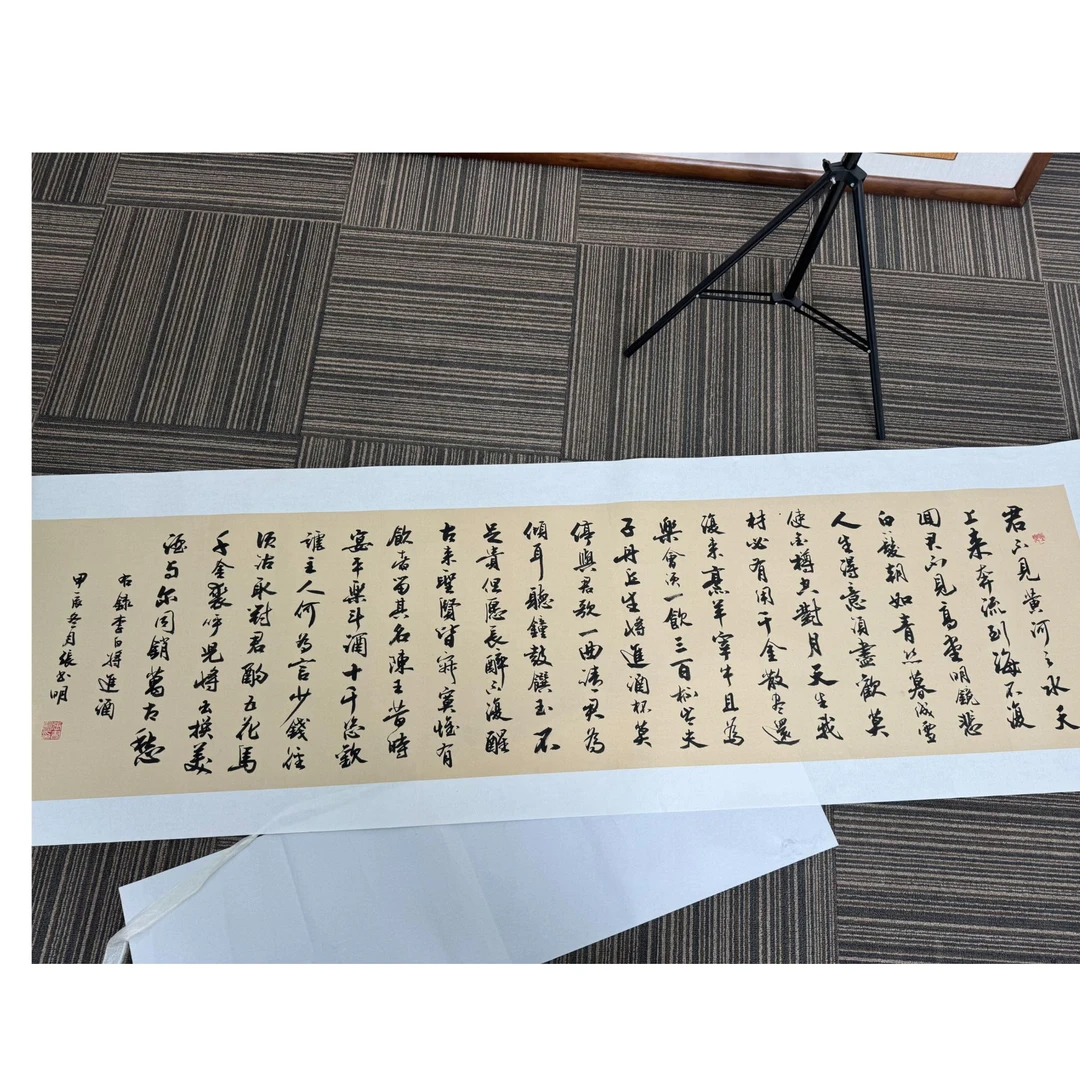 君不見黄河之水天
上来奔流到海不復
回君不見高堂明鏡悲
白髮朝如青丝暮成雪
人生得意須盡歡莫
使金樽空對月天生我
材必有用千金散尽還
復来烹羊宰牛且為
樂會須一飲三百杯岑夫
子丹丘生將進酒杯莫
停與君歌一曲請君為
傾耳聽鐘鼓饌玉不
足貴但愿長醉不復醒
古来聖賢皆寂寞惟有
飲者留其名陳王昔時
宴平樂斗酒十千恣歡
謔主人何為言少錢径
須沽取對君酌五花馬
千金裘呼兒將出換美
酒与尔同銷萬古愁
右錄李白将進酒
甲辰冬月張明